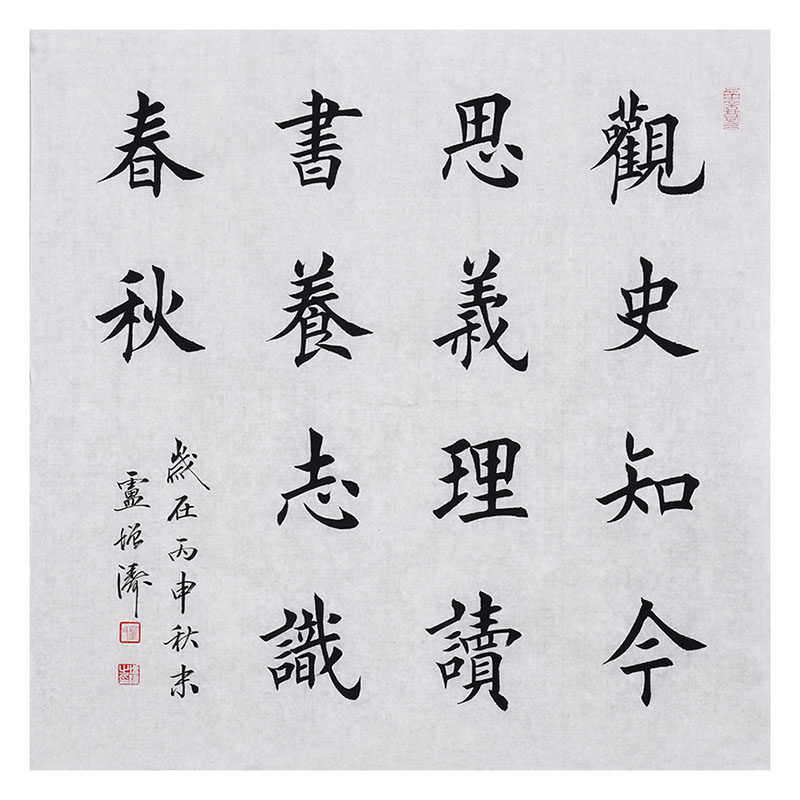 觀史知今
思義理讀
書養志識
春秋
歲在丙申秋末
盧增濤